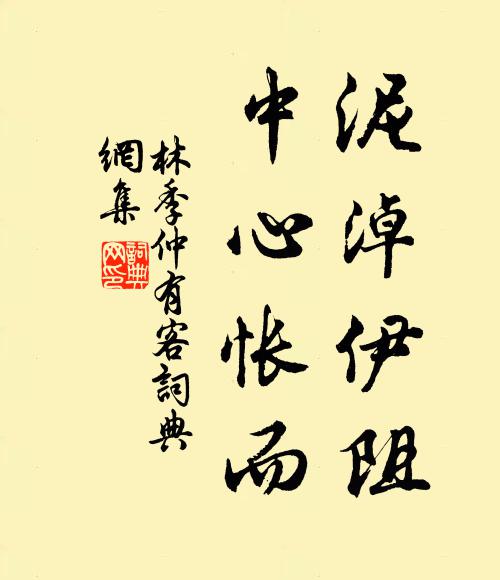 泥淖伊阻
中心悵而
林季仲有客詞典
網集
詞典
网印